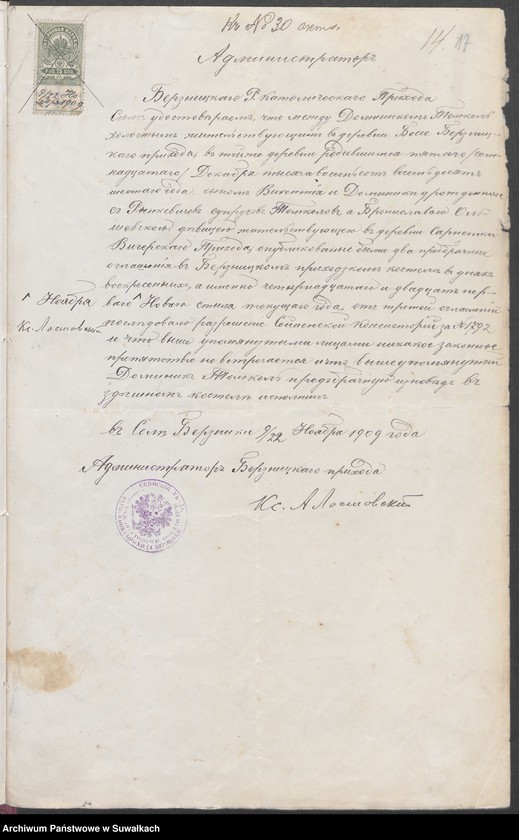 Къ № 30 акта
14 17
Администраторъ
Берзницкаго Р. Католическаго Прихода
Симъ удостовѣряетъ, что между Доминикомъ Томкель
холостымъ жительствующимъ въ деревни Берзниц-
каго прихода, въ той же деревни родившимся пятаго /сем-
надцатаго/ Декабря тысяча восемьсотъ восемьдесятъ
шестаго года, сыномъ Викентія и Доминики урожденной
Рынкевичъ супруговъ Томкелевъ а Брониславою Оль-
шевскою дѣвицею жительствующею въ деревни
Вигерскаго Прихода, опубликованы были два предбрачныя
оглашенія въ Берзницкомъ приходскомъ костелѣ въ дняхъ
воскресенныхъ, а именно четырнадцатаго и двадцать пер-
ваго Новаго стиля текущаго года, отъ третей оглашеній
послѣдовало разрешеніе Сейненской Консисторіи за № 1792
и что выше упомянутыми лицами никакое законное
препятство не встрѣчается и что вышеупомянутый
Доминикъ Томкель предбрачную исповѣдь въ
здѣшномъ костелѣ исполнилъ
^ Ноября
Кс. Лосиовскій
въ Селѣ Берзники 9/22 Ноября 1909 года
Администраторъ Берзницкаго прихода
Кс. А Лосиовскій
Archiwum Państwowe w Suwałkach